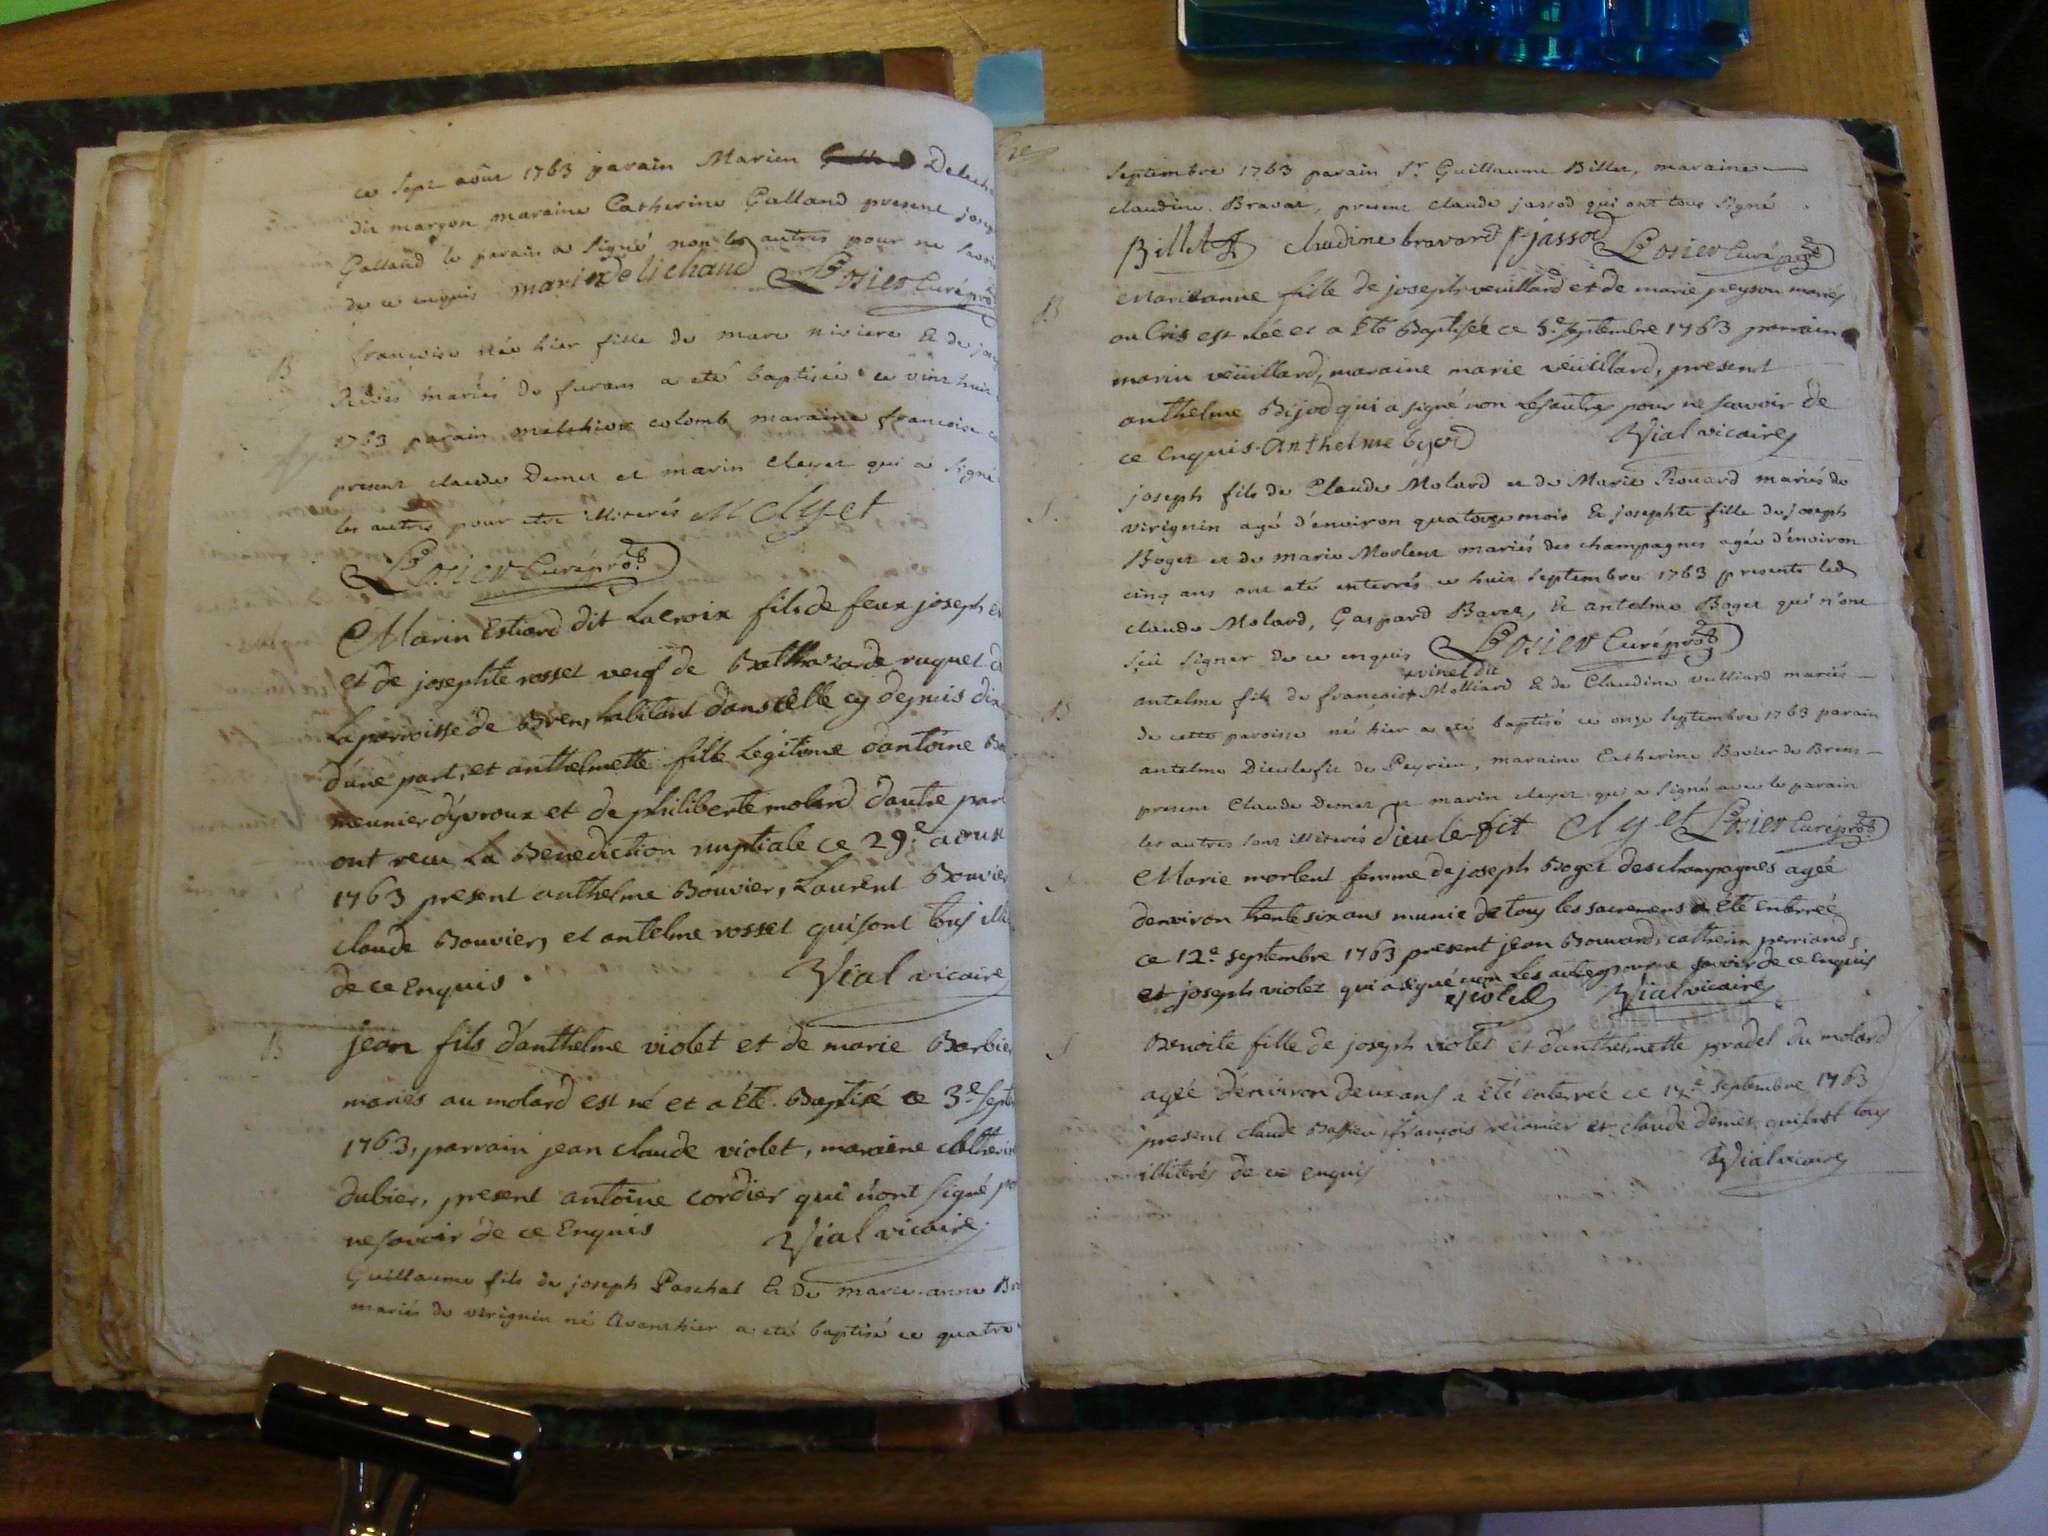 ce sept aôut 1763 parain Marien
dit marçon maraine Catherine Galland present
Galland le parain a signé non les autres pour ne savoir
de ce enquis marin delichand Losier Curé
B
francoise née hier fille de marc niviere & de
mariés de furans a eté baptisée ce vint huit
1763 parain melchior colomb maraine francoise
present claude Demet et marin cleyet qui a signé
les autres pour etre illiterés M Clyet
Losier Curé
Marin Estiard dit Lacroix fils de feux joseph
et de josephte rosset veuf de Balthazarde ruquet
La parroisse de Brens, habitant dans celle cy depuis
d'une part, et anthelmette fille Legitime d'antoine
meunier d'yvroux et de philiberte molard d'autre part
ont recu La Benediction nuptiale ce 29e aoust
1763 present anthelme Bouvier, Laurent Bouvier
claude Bouvier, et antelme rosset qui sont tous
de ce Enquis. Vial vicaire
B
jean fils d'anthelme violet et de marie Barbier
mariés au molard est né et a été Baptisé ce 3e Septbre
1763, parrain jean claude violet, maraine
dubier, present antoine cordier qui n'ont signé
ne savoir de ce Enquis Vial vicaire
Guillaume fils de joseph Paschal & de marie-anne
mariés de virignin né Avanthier a eté baptisé ce quatre
septembre 1763 parain Sr Guillaume Billet, maraine
claudine Bravat, present claude jassod qui ont tous signé
Billet claudine bravard jassod Losier Curé
B
Marieanne fille de joseph veuillard et de marie peyson mariés
au Cris est née et a Eté Baptisée ce 5e septembre 1763 parrain
marin veüillard, maraine marie veüillard, present
anthelme Bijod qui a signé non les autres pour ne scavoir de
ce Enquis. Anthelme byod Vial vicaire
S.
joseph fils de Claude Molard et de Marie Rouard mariés de
virignin agé d'environ quatorze mois & josephte fille de joseph
Boget et de marie Morlent mariés des champagnes agée d'environ
cinq ans ont eté enterrés ce huit septembre 1763 presents led
claude Molard, Gaspard Bavet, & antelme Boget qui n'ont
sçu signer de ce enquis Losier Curé
B
vinel dit
antelme fils de francois Molliard & de Claudine vulliard mariés
de cette paroisse né hier a eté baptisé ce onze septembre 1763 parain
antelme Dieulefit de Peyrieu, maraine Catherine Bovier de Brens
present Claude Demet et marin cleyet qui a signé avec le parain
les autres sont illiterés dieulefit Clyet Losier Curé
Marie morlent femme de joseph Boget des champagnes agée
d'environ trente six ans munie de tous les sacremens a été Enterrée
ce 12e septembre 1763 present jean Bouvard, catherin perriand,
et joseph violet qui a signé non Les autres pour ne savoir de ce Enquis
violet Vial vicaire
S
Benoite fille de joseph violet et d'anthelmette pradel du molard
agée d'environ deux ans a Eté enterrée ce septembre 1763
present claude Baffieu, françois recomier et claude demet qui sont tous
illiterés de ce enquis Vial vicaire